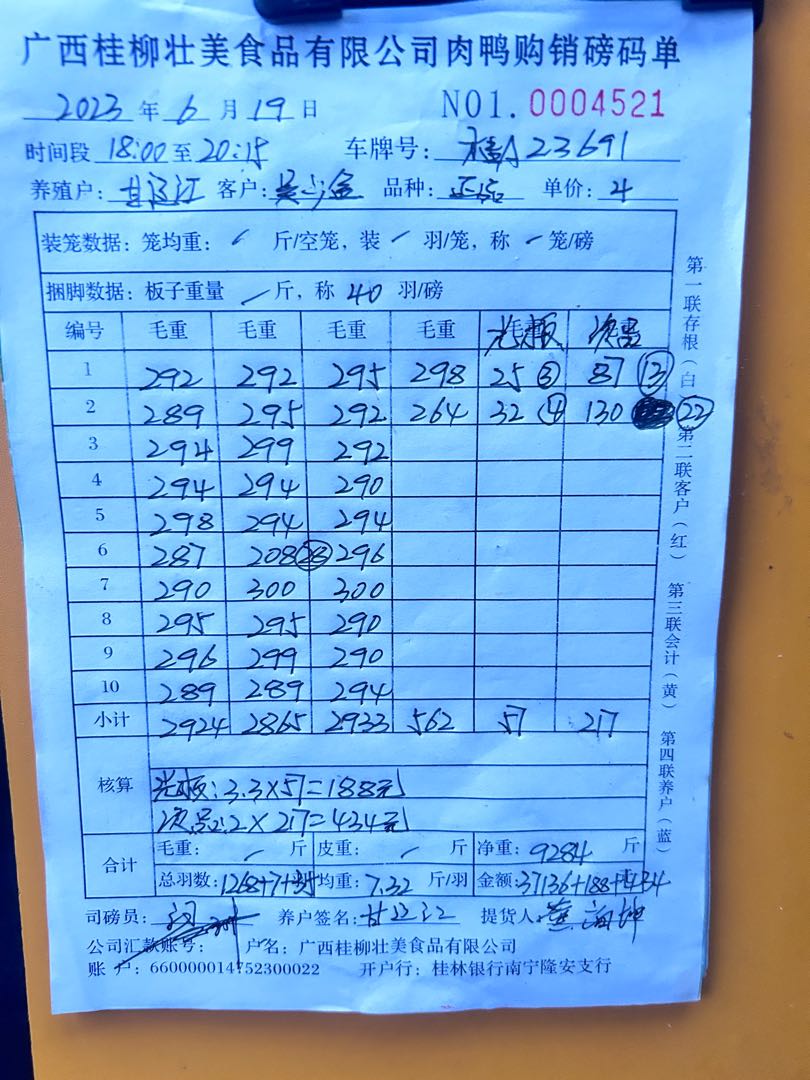 广西桂柳壮美食品有限公司肉鸭购销磅码单
2023 年 6 月 19 日 NO1. 0004521
时间段 18:00 至 20:15 车牌号: 23691
养殖户: 甘江 客户: 吴金 品种: 正品 单价: 4
装笼数据: 笼均重: / 斤/空笼, 装 / 羽/笼, 称 / 笼/磅
捆脚数据: 板子重量 / 斤, 称 40 羽/磅
编号 毛重 毛重 毛重 毛重 光板 次品
1 292 292 295 298 25 ③ 87 ⑬
2 289 295 292 264 32 ④ 130 ㉒
3 294 299 292
4 294 294 290
5 298 294 294
6 287 208 ㉘ 296
7 290 300 300
8 295 295 290
9 296 299 290
10 289 289 294
小计 2924 2865 2933 562 57 217
核算
光板: 3.3×57=188元
次品: 2×217=434元
合计
毛重: / 斤 皮重: / 斤 净重: 9284 斤
总羽数: 1268+7+35 均重: 7.32 斤/羽 金额: 37136+188+434
司磅员: 养户签名: 甘江 提货人:
公司汇款账号: 户名: 广西桂柳壮美食品有限公司
账户: 660000014752300022 开户行: 桂林银行南宁隆安支行
第一联存根(白) 第二联客户(红) 第三联会计(黄) 第四联养户(蓝)